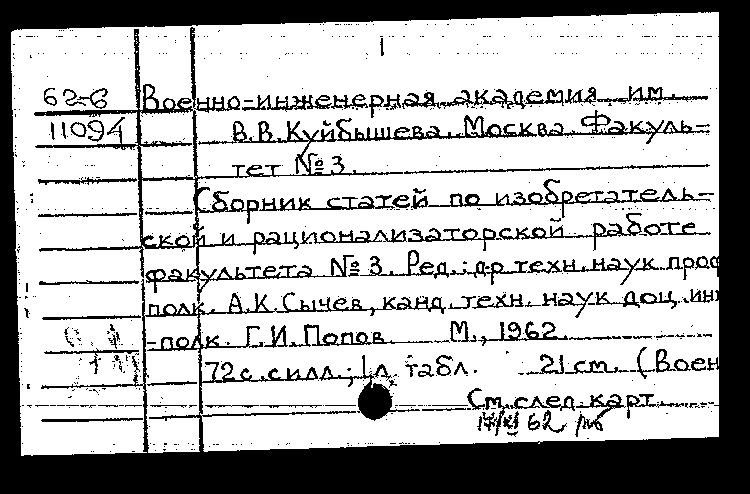 1
62-6 Военно-инженерная академия им.
11094 В.В.Куйбышева. Москва. Факуль-
тет №3.
Сборник статей по изобретатель-
ской и рационализаторской работе
факультета №3. Ред.: д-р техн. наук проф
полк. А.К.Сычев, канд. техн. наук доц. инж
-полк. Г.И.Попов. М., 1962
72с. с илл.; 1л. табл. 21см. (Воен
См. след. карт.
17/XI 62